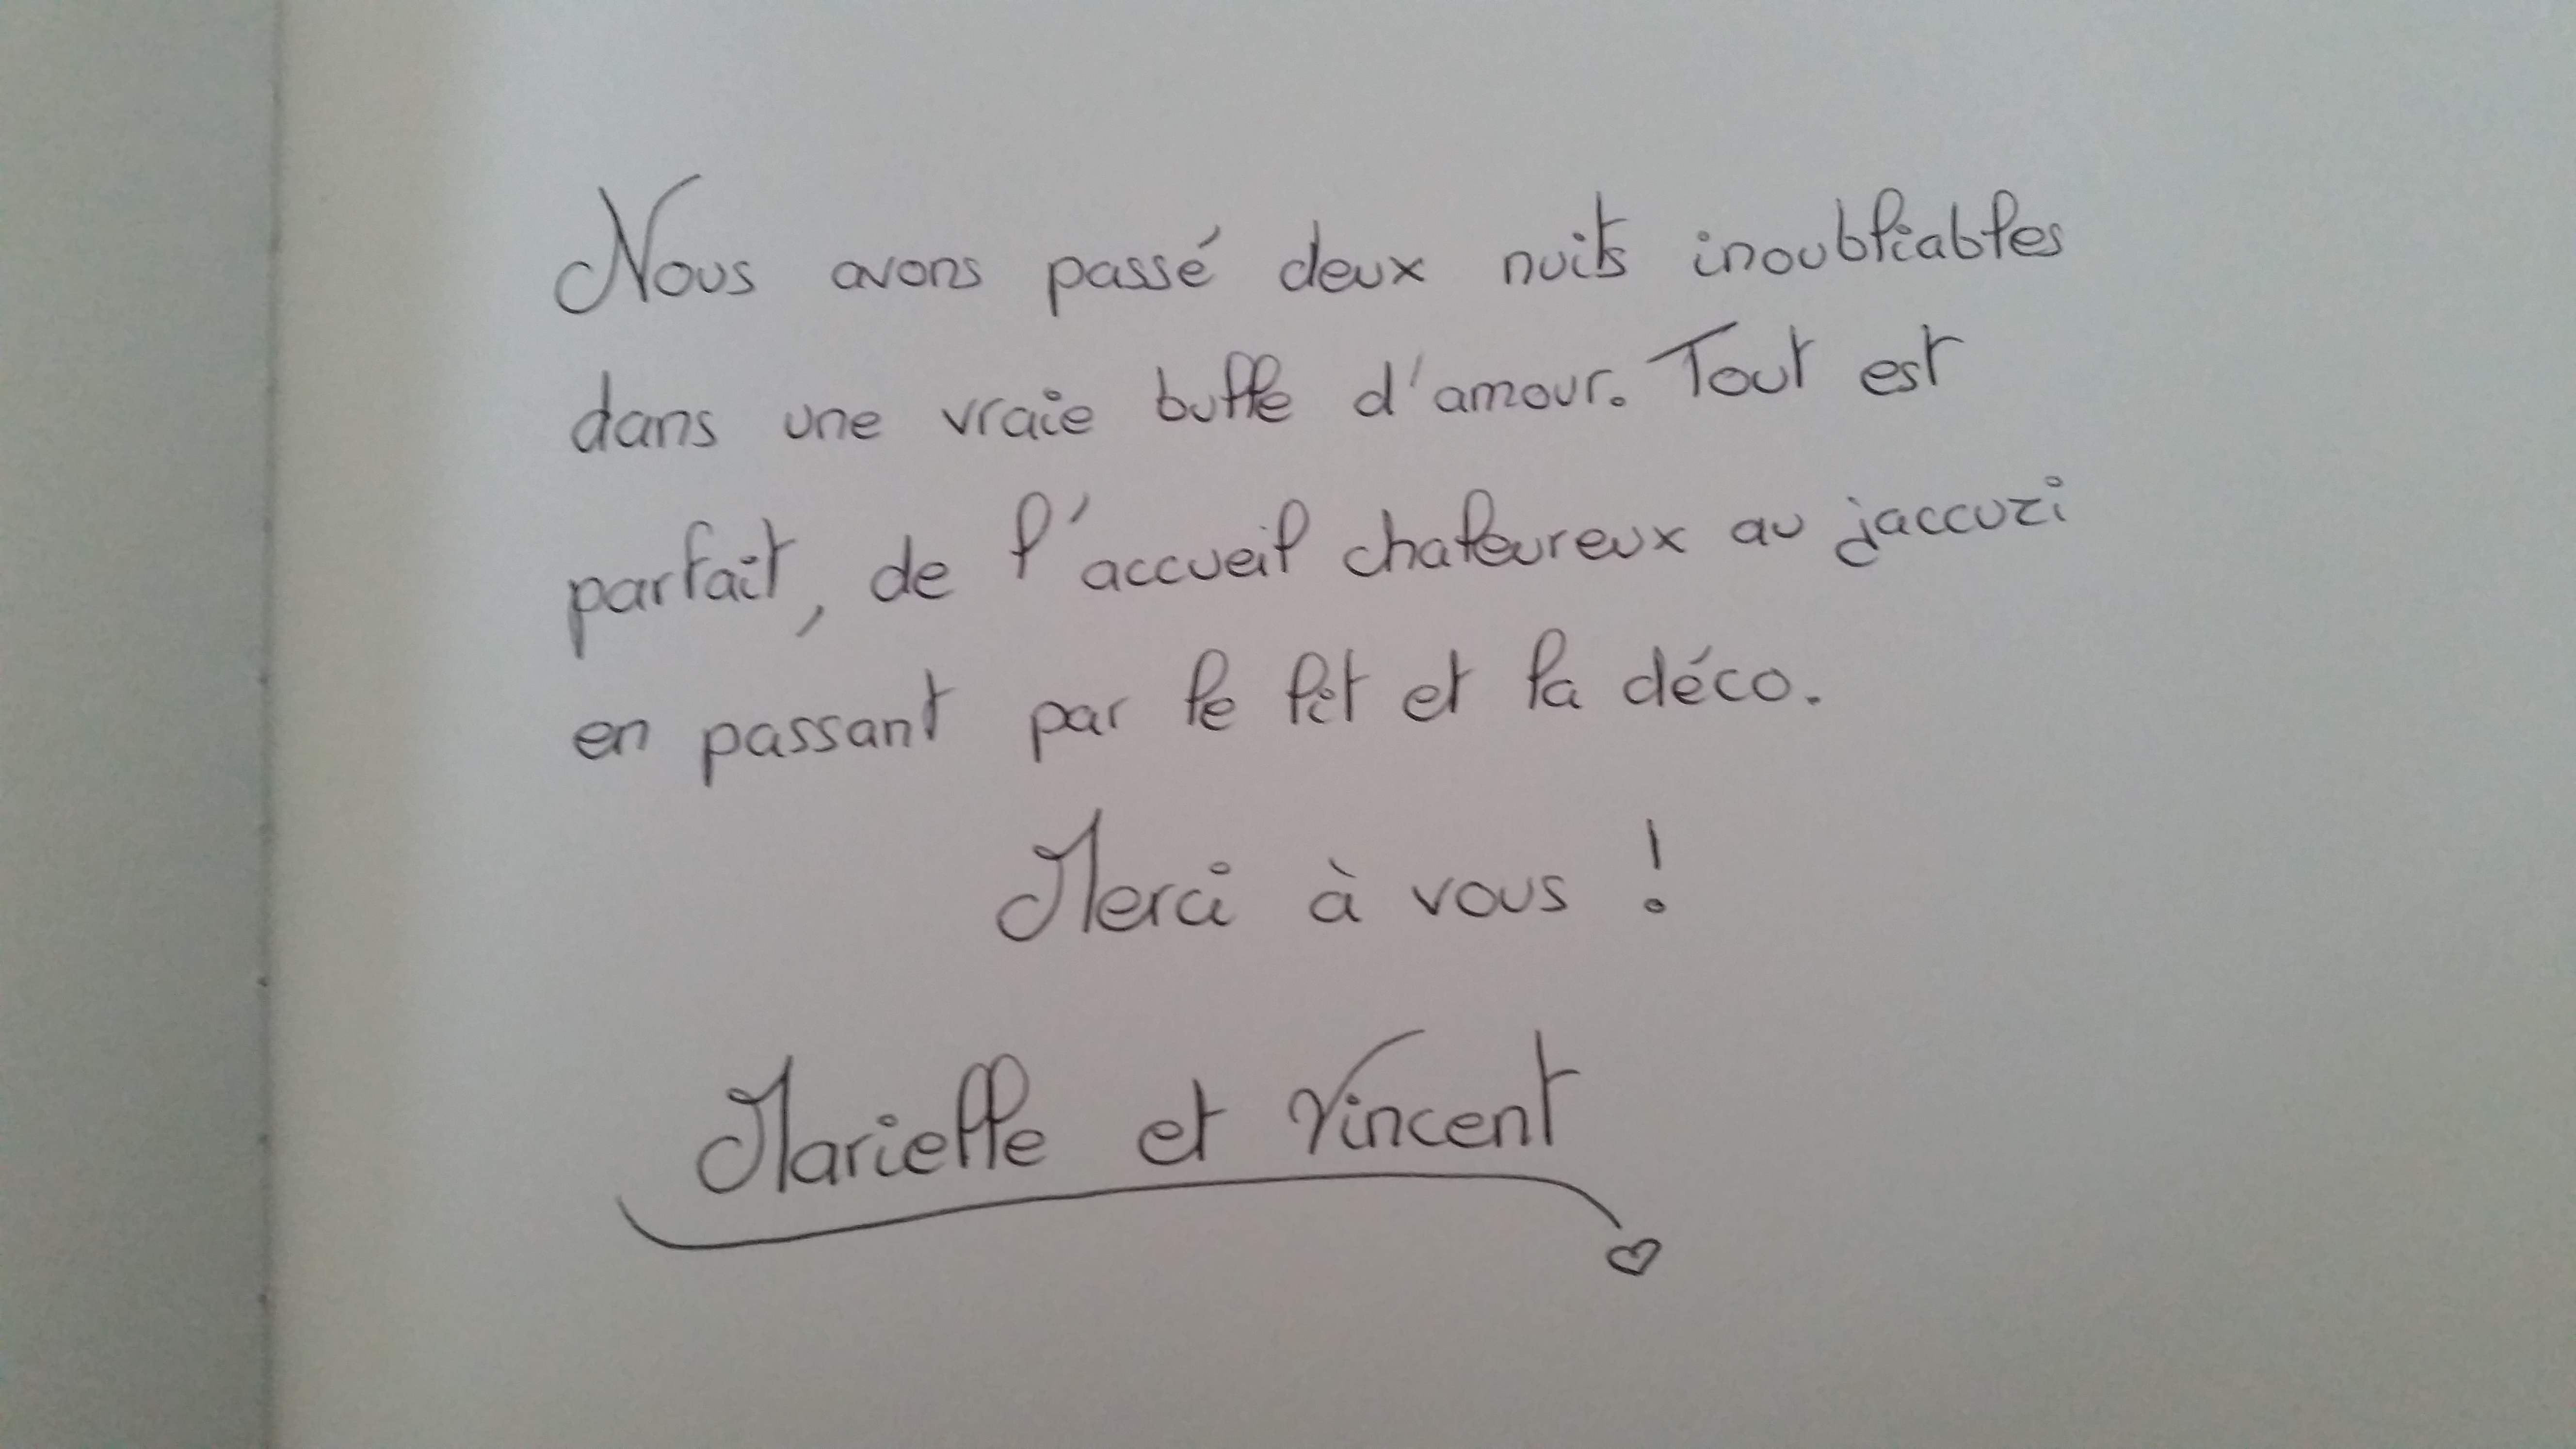 Nous avons passé deux nuits inoubliables
dans une vraie bulle d'amour. Tout est
parfait, de l'accueil chaleureux au jaccuzi
en passant par le lit et la déco.
Merci à vous !
Marielle et Vincent